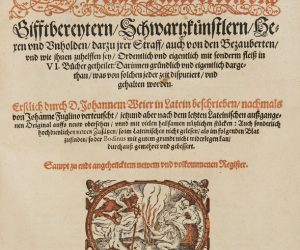 Gifftbereytern / Schwartzkünstlern / He-
xen vnd Vnholden / darzu jrer Straff / auch von den Bezauberten /
vnd wie ihnen zuhelffen sey / Ordentlich vnd eigentlich mit sonderm fleiß in
VI. Bücher getheilet: Darinnen gründlich vnd eigentlich darge-
than / was von solchen jeder zeit disputiert / vnd
gehalten worden.
Erstlich durch D. Johannem Weier in Latein beschrieben / nachmals
von Johanne Fuglino verteuscht / jetzund aber nach dem letzten Lateinischen außgangen-
nen Original auffs neuw vbersehen / vnnd mit vielen heilsamen nützlichen stücken: Auch sonderlich
hochdienlichen newen Zusätzen / so im Lateinischen nicht gelesen / als im folgenden Blat
zufinden / so der Bodinus mit gutem grundt nicht widerlegen kan /
durchauß gemehret vnd gebessert.
Sampt zu endt angehencktem newem vnd vollkommenen Register.